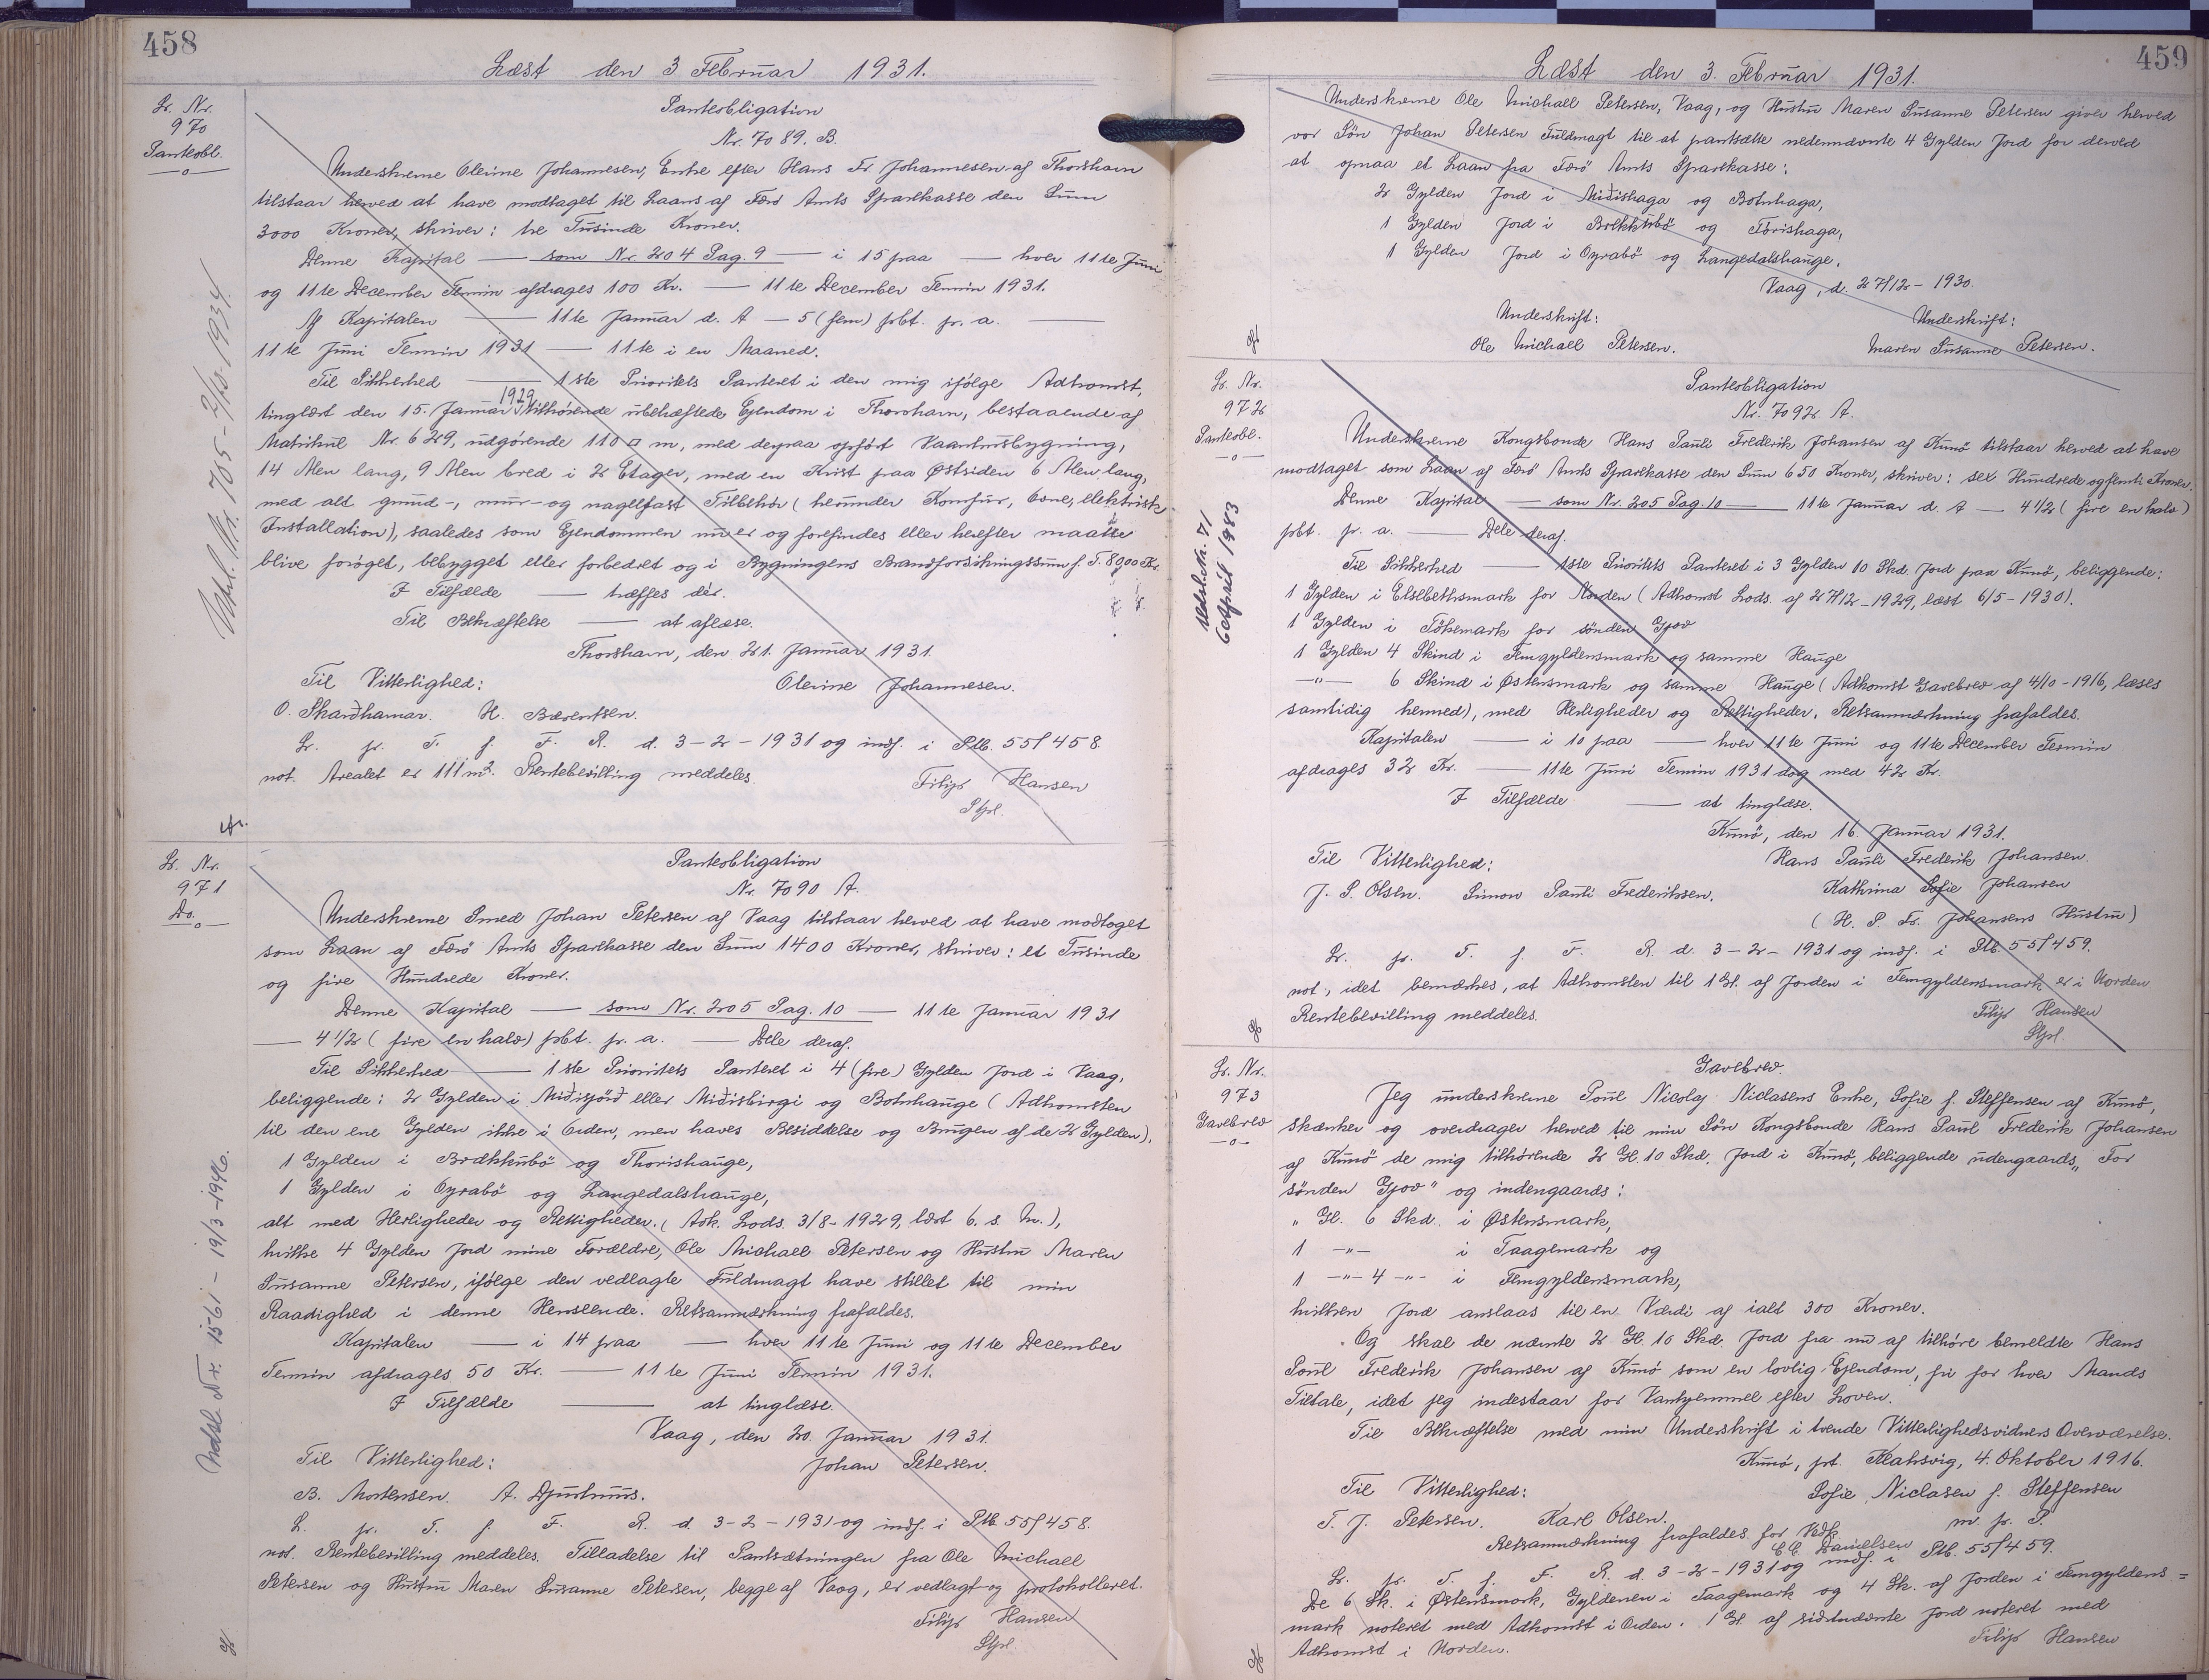 458
Læst den 3 Februar 1931.
Lr. Nr.
970
Panteobl.
Panteobligation
Nr. 7089. B.
Underskrevne Olevine Johannesen, Enke efter Hans Fr. Johannesen af Thorshavn
tilstaar herved at have modtaget til Laans af Færø Amts Sparekasse den Sum
3000 Kroner, skriver: tre Tusinde Kroner.
Denne Kapital — som Nr. 204 Pag. 9 — i 15 paa — hver 11te Juni
og 11te December Termin afdrages 100 Kr. — 11te December Termin 1931.
Af Kapitalen — 11te Januar d. A — 5 (fem) pCt. pr. a. —
11te Juni Termin 1931 — 11te i en Maaned.
Til Sikkerhed — 1ste Prioritets Panteret i den mig ifølge Adkomst,
tinglæst den 15. Januar 1929 tilhørende ubehæftede Ejendom i Thorshavn, bestaaende af
Matrikul Nr. 629, udgørende 110 □ m, med derpaa opført Vaaningsbygning,
14 Alen lang, 9 Alen bred i 2 Etager, med en Kvist paa Østsiden 6 Alen lang,
med alt grund-, mur- og nagelfast Tilbehør (herunder Komfur, Ovne, elektrisk
Installation), saaledes som Ejendommen nu er og forefindes eller herefter maatte
blive forøget, bebygget eller forbedret og i Bygningens Brandforsikringssum f. T. 8000 Kr.
I Tilfælde — træffes dér.
Til Bekræftelse — at aflæse.
Thorshavn, den 21. Januar 1931.
Til Vitterlighed: Olevine Johannesen.
O. Skarðhamar. H. Bærentsen.
Lr. pr. T. f. F. R. d. 3-2-1931 og indf. i Ptb. 55/458.
not. Arealet er 111 m². Rentebevilling meddeles.
Filip Hansen
Stpl.
Udsl. Nr. 705 - 7/12-1934.
Lr. Nr.
971
Do.
Panteobligation
Nr. 7090 A.
Underskrevne Smed Johan Petersen af Vaag tilstaar herved at have modtaget
som Laan af Færø Amts Sparekasse den Sum 1400 Kroner, skriver: et Tusinde
og fire Hundrede Kroner.
Denne Kapital — som Nr. 205 Pag. 10 — 11te Januar 1931
— 4 1/2 (fire en halv) pCt. pr. a. — Dele deraf.
Til Sikkerhed — 1ste Prioritets Panteret i 4 (fire) Gylden Jord i Vaag,
beliggende: 2 Gylden i Miðisjörð eller Miðisbirgi og Botnhauge (Adkomsten
til den ene Gylden ikke i Orden, men haves Besiddelse og Brugen af de 2 Gylden),
1 Gylden i Brækkubö og Thorishauge,
1 Gylden i Oyrabö og Langedalshauge,
alt med Herligheder og Rettigheder. (Adk. Lods. 3/8-1929, læst 6. s. M.),
hvilke 4 Gylden Jord mine Forældre, Ole Michael Petersen og Hustru Maren
Susanne Petersen, ifølge den vedlagte Fuldmagt have stillet til min
Raadighed i denne Henseende. Retsanmærkning frafaldes.
Kapitalen — i 14 paa — hver 11te Juni og 11te December
Termin afdrages 50 Kr. — 11te Juni Termin 1931.
I Tilfælde — at tinglæse.
Vaag, den 20. Januar 1931.
Til Vitterlighed: Johan Petersen.
B. Mortensen. A. Djurhuus.
L. pr. T. f. F. R. d. 3-2-1931 og indf. i Ptb. 55/458.
not. Rentebevilling meddeles. Tilladelse til Pantsætningen fra Ole Michael
Petersen og Hustru Maren Susanne Petersen, begge af Vaag, er vedlagt og protokolleret.
Filip Hansen
Stpl.
Udsl. Nr. 1561 - 19/3-1946.
459
Læst den 3. Februar 1931.
Underskrevne Ole Michael Petersen, Vaag, og Hustru Maren Susanne Petersen giver herved
vor Søn Johan Petersen Fuldmagt til at pantsætte nedennævnte 4 Gylden Jord for derved
at opnaa et Laan fra Færö Amts Sparekasse:
2 Gylden Jord i Miðishaga og Botnhaga,
1 Gylden Jord i Brekkubö og Tórishaga,
1 Gylden Jord i Oyrabö og Langedalshauge.
Vaag, d. 27/12-1930.
Underskrift: Underskrift:
Ole Michael Petersen. Maren Susanne Petersen.
Lr. Nr.
972
Panteobl.
Panteobligation
Nr. 7092 A.
Underskrevne Kongsbonde Hans Pauli Frederik Johansen af Kunö tilstaar herved at have
modtaget som Laan af Færö Amts Sparekasse den Sum 650 Kroner, skriver: sex Hundrede og femti Kroner.
Denne Kapital — som Nr. 205 Pag. 10 — 11te Januar d. A — 4 1/2 (fire en halv)
pCt. pr. a. — Dele deraf.
Til Sikkerhed — 1ste Prioritets Panteret i 3 Gylden 10 Skd. Jord paa Kunö, beliggende:
1 Gylden i Elsebethsmark for Norden (Adkomst Lods. af 27/12-1929, læst 6/5-1930).
1 Gylden i Tókemark for sönden Gjov
1 Gylden 4 Skind i Femgyldensmark og samme Hauge
—"— 6 Skind i Østensmark og samme Hauge (Adkomst Gavebrev af 4/10-1916, læses
samtidig hermed), med Herligheder og Rettigheder. Retsanmærkning frafaldes.
Kapitalen — i 10 paa — hver 11te Juni og 11te December Termin
afdrages 32 Kr. — 11te Juni Termin 1931 dog med 42 Kr.
I Tilfælde — at tinglæse.
Kunö, den 16. Januar 1931.
Til Vitterlighed: Hans Pauli Frederik Johansen.
J. P. Olsen. Simon Pauli Frederiksen. Kathrina Sofie Johansen
(H. P. Fr. Johansens Hustru)
Lr. pr. T. f. F. R. d. 3-2-1931 og indf. i Ptb. 55/459.
not., idet bemærkes, at Adkomsten til 1 Gl. af Jorden i Femgyldensmark er i Uorden
Rentebevilling meddeles. Filip Hansen
Stpl.
Udsl. Nr. 71
6 April 1983
Lr. Nr.
973
Gavebrev
Gavebrev.
Jeg underskrevne Poul Nicolaj Niclasens Enke, Sofie f. Steffensen af Kunö,
skænker og overdrager herved til min Søn Kongsbonde Hans Paul Frederik Johansen
af Kunö de mig tilhørende 2 Gl. 10 Skd. Jord i Kunö, beliggende udengaards „For
sönden Gjov" og indengaards:
" Gl. 6 Skd. i Østensmark,
1 —"— i Taagemark og
1 —"— 4 —"— i Femgyldensmark,
hvilken Jord anslaas til en Værdi af ialt 300 Kroner.
Og skal de nævnte 2 Gl. 10 Skd. Jord fra nu af tilhøre bemeldte Hans
Poul Frederik Johansen af Kunö som en lovlig Ejendom, fri for hver Mands
Tiltale, idet jeg indestaar for Vanhjemmel efter Loven.
Til Bekræftelse med min Underskrift i tvende Vitterlighedsvidners Overværelse.
Kunö, pt. Klaksvig, 4. Oktober 1916.
Til Vitterlighed: Sofie Niclasen f. Steffensen
T. J. Petersen. Karl Olsen. m. p. P.
Retsanmærkning frafaldes. for Vedk.
Danielsen
Lr. pr. T. f. F. R. d. 3-2-1931 og indf. i Ptb. 55/459.
De 6 Sk. i Østensmark, Gyldenen i Taagemark og 4 Sk. af Jorden i Femgyldens=
mark noteret med Adkomst i Orden. 1 Gl. af sidstnævnte Jord noteret med
Adkomst i Uorden. Filip Hansen